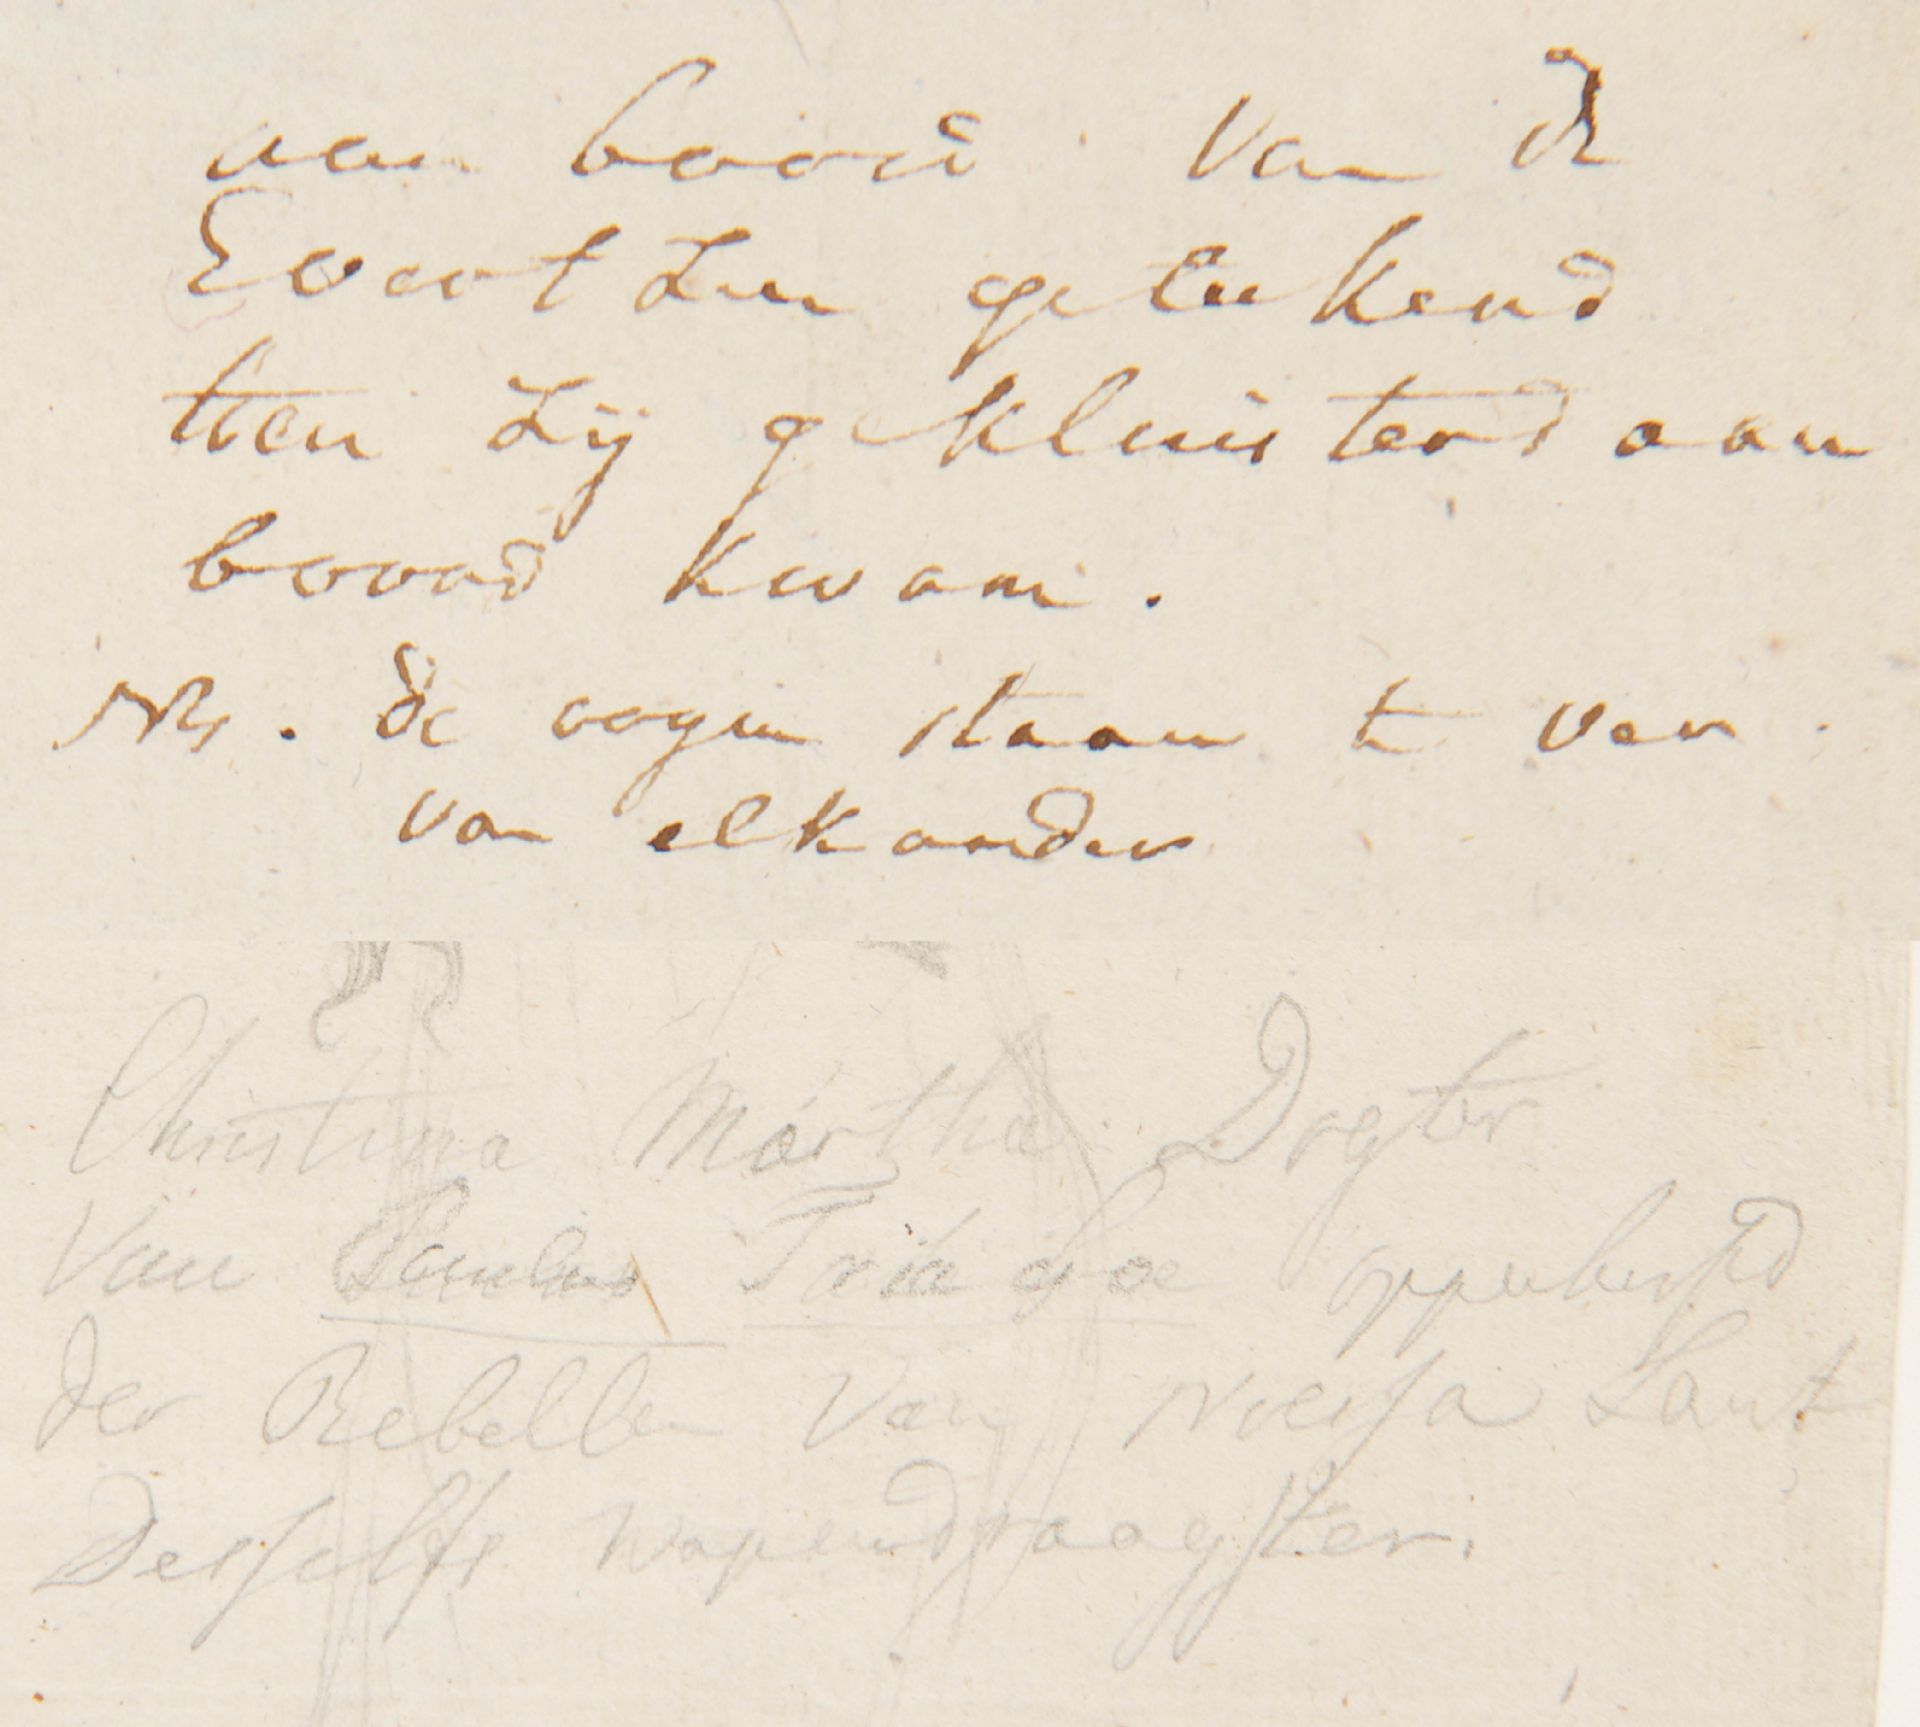 aan boord van de
Evertzen geteekend
toen zij gekluisterd aan
boord kwam.
NB. de oogen staan te ver
van elkander
Christina Martha Dogter
Van Paulus Triagoe opperhoofd
der Rebellen Van Noessa Laut
Desselfs wapendraagster.